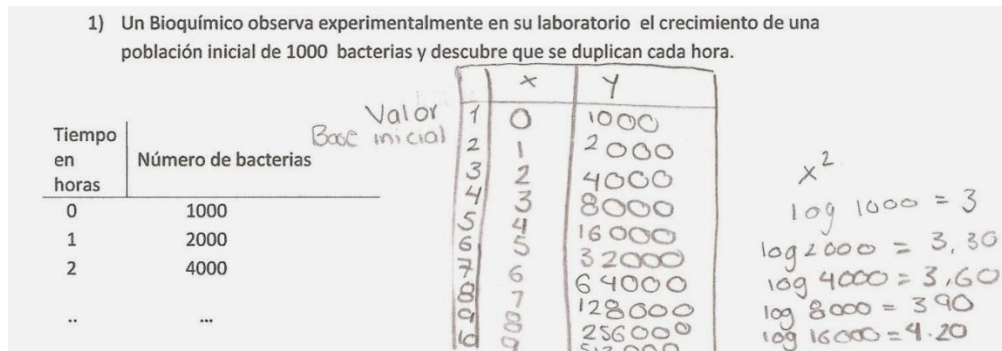 1) Un Bioquímico observa experimentalmente en su laboratorio el crecimiento de una
población inicial de 1000 bacterias y descubre que se duplican cada hora.
Tiempo en horas Número de bacterias
0 1000
1 2000
2 4000
.. ...
Valor
Base inicial
x y
1 0 1000
2 1 2000
3 2 4000
4 3 8000
5 4 16000
6 5 32000
7 6 64000
8 7 128000
9 8 256000
10 9 512000
x²
log 1000 = 3
log 2000 = 3,30
log 4000 = 3,60
log 8000 = 390
log 16000 = 4.20